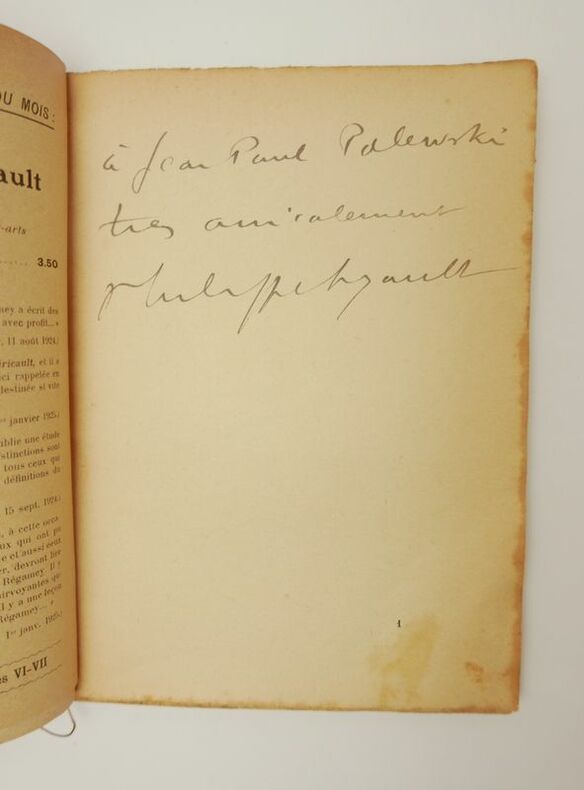 DU MOIS :
ault
-arts
3.50
ney a écrit des
avec profit... »
, 11 août 1924.)
éricault, et il a
ci rappelée en
destinée si vite
janvier 1925.)
ublie une étude
stinctions sont
tous ceux qui
définitions du
15 sept. 1924.)
, à cette occa-
ux qui ont pu
e et aussi ceux
er, devront lire
Régamey. Il y
airvoyantes que
Il y a une leçon
Régamey... »
1er janv. 1925.)
es VI-VII
à Jean Paul Palewski
très amicalement
1